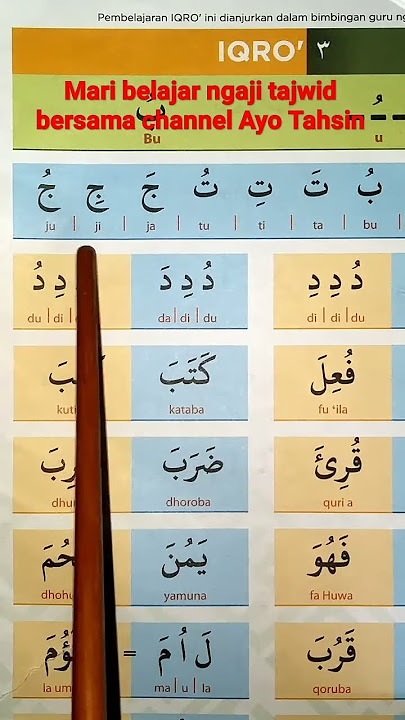 Pembelajaran IQRO' ini dianjurkan dalam bimbingan guru
IQRO' ٣
Mari belajar ngaji tajwid
bersama channel Ayo Tahsin
بُ ـُ
Bu u
بُ تَ تِ تُ جَ جِ جُ
ju | ji | ja | tu | ti | ta | bu
دُ دِ دِ
di | di | du
دُ دِ دَ
da | di | du
دِ دُ
du | di
فُعِلَ
fu 'ila
كَتَبَ
kataba
kuti
قُرِئَ
quri a
ضَرَبَ
dhoroba
dhu
فَهُوَ
fa Huwa
يَمُنَ
yamuna
dhohu
قَرُبَ
qoruba
لَ اُ مَ =
ma | u | la
la um